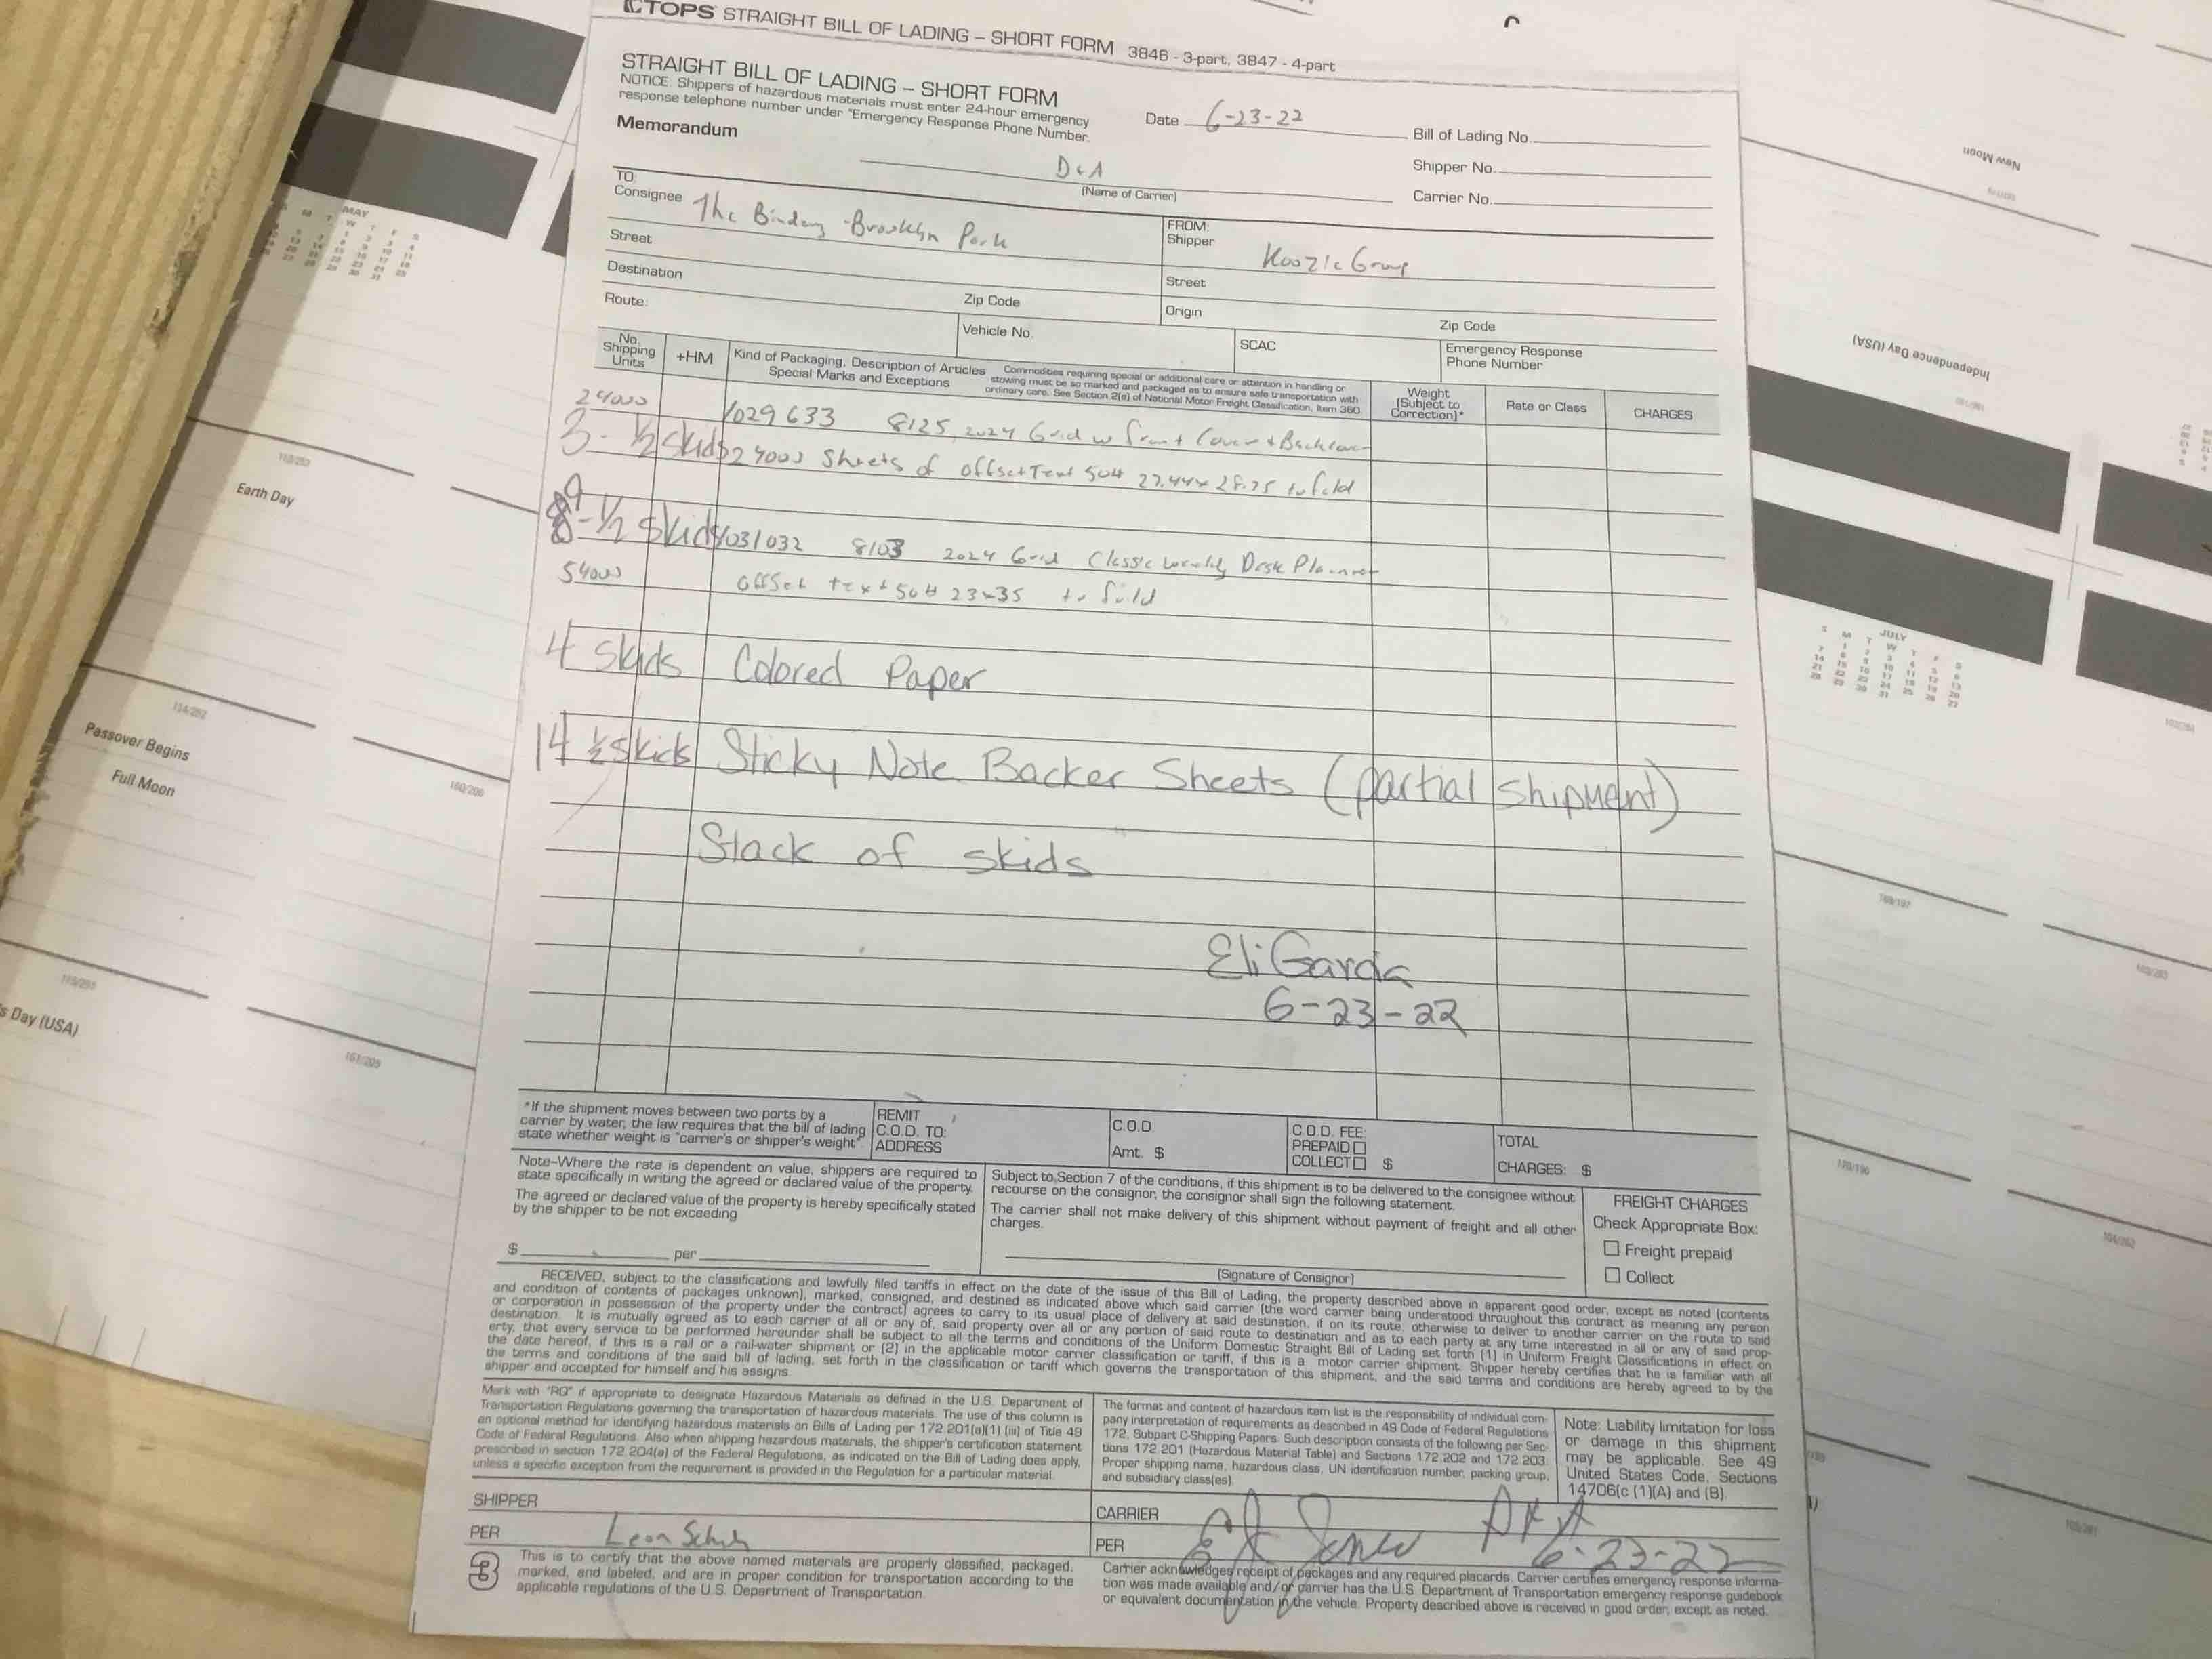 TOPS STRAIGHT BILL OF LADING – SHORT FORM 3846 - 3-part, 3847 - 4-part
STRAIGHT BILL OF LADING – SHORT FORM
NOTICE: Shippers of hazardous materials must enter 24-hour emergency
response telephone number under "Emergency Response Phone Number.
Memorandum
Date 6-23-22
Bill of Lading No.
Shipper No.
Carrier No.
D&A
(Name of Carrier)
TO:
Consignee The Bindery - Brooklyn Park
FROM:
Shipper Koozie Group
Street
Street
Destination
Zip Code
Origin
Zip Code
Route:
Vehicle No.
SCAC
Emergency Response
Phone Number
No.
Shipping
Units
+HM
Kind of Packaging, Description of Articles
Special Marks and Exceptions
Commodities requiring special or additional care or attention in handling or
stowing must be so marked and packaged as to ensure safe transportation with
ordinary care. See Section 2(e) of National Motor Freight Classification, Item 360.
Weight
(Subject to
Correction)*
Rate or Class
CHARGES
24000 1029633 8125 2024 Grid w front Cover + Backcover
3 - 1/2 skids 24000 Sheets of Offset Text 50# 27.44 x 28.75 to fold
9 - 1/2 skids 1031032 8103 2024 Grid Classic Weekly Desk Planner
54000 Offset text 50# 23x35 to fold
4 skids Colored Paper
14 1/2 skids Sticky Note Backer Sheets (partial shipment)
Stack of skids
Eli Garda
6-23-22
*If the shipment moves between two ports by a
carrier by water, the law requires that the bill of lading
state whether weight is "carrier's or shipper's weight".
REMIT
C.O.D. TO:
ADDRESS
C.O.D.
Amt. $
C.O.D. FEE:
PREPAID
COLLECT $
TOTAL
CHARGES: $
Note–Where the rate is dependent on value, shippers are required to
state specifically in writing the agreed or declared value of the property.
The agreed or declared value of the property is hereby specifically stated
by the shipper to be not exceeding
$ per
Subject to Section 7 of the conditions, if this shipment is to be delivered to the consignee without
recourse on the consignor, the consignor shall sign the following statement.
The carrier shall not make delivery of this shipment without payment of freight and all other
charges.
(Signature of Consignor)
FREIGHT CHARGES
Check Appropriate Box:
Freight prepaid
Collect
RECEIVED, subject to the classifications and lawfully filed tariffs in effect on the date of the issue of this Bill of Lading, the property described above in apparent good order, except as noted (contents
and condition of contents of packages unknown), marked, consigned, and destined as indicated above which said carrier (the word carrier being understood throughout this contract as meaning any person
or corporation in possession of the property under the contract) agrees to carry to its usual place of delivery at said destination, if on its route, otherwise to deliver to another carrier on the route to said
destination. It is mutually agreed as to each carrier of all or any of, said property over all or any portion of said route to destination and as to each party at any time interested in all or any of said prop-
erty, that every service to be performed hereunder shall be subject to all the terms and conditions of the Uniform Domestic Straight Bill of Lading set forth (1) in Uniform Freight Classifications in effect on
the date hereof, if this is a rail or a rail-water shipment or (2) in the applicable motor carrier classification or tariff, if this is a motor carrier shipment. Shipper hereby certifies that he is familiar with all
the terms and conditions of the said bill of lading, set forth in the classification or tariff which governs the transportation of this shipment, and the said terms and conditions are hereby agreed to by the
shipper and accepted for himself and his assigns.
Mark with "RQ" if appropriate to designate Hazardous Materials as defined in the U.S. Department of
Transportation Regulations governing the transportation of hazardous materials. The use of this column is
an optional method for identifying hazardous materials on Bills of Lading per 172.201(a)(1) (iii) of Title 49
Code of Federal Regulations. Also when shipping hazardous materials, the shipper's certification statement
prescribed in section 172.204(a) of the Federal Regulations, as indicated on the Bill of Lading does apply,
unless a specific exception from the requirement is provided in the Regulation for a particular material.
The format and content of hazardous item list is the responsibility of individual com-
pany interpretation of requirements as described in 49 Code of Federal Regulations
172, Subpart C-Shipping Papers. Such description consists of the following per Sec-
tions 172.201 (Hazardous Material Table) and Sections 172.202 and 172.203:
Proper shipping name, hazardous class, UN identification number, packing group,
and subsidiary class(es).
Note: Liability limitation for loss
or damage in this shipment
may be applicable. See 49
United States Code, Sections
14706(c (1)(A) and (B).
SHIPPER
PER Leon
CARRIER D&A
PER 6-23-22
3
This is to certify that the above named materials are properly classified, packaged,
marked, and labeled, and are in proper condition for transportation according to the
applicable regulations of the U.S. Department of Transportation.
Carrier acknowledges receipt of packages and any required placards. Carrier certifies emergency response informa-
tion was made available and/or carrier has the U.S. Department of Transportation emergency response guidebook
or equivalent documentation in the vehicle. Property described above is received in good order, except as noted.
MAY
Earth Day
Passover Begins
Full Moon
160/206
161/205
's Day (USA)
New Moon
Independence Day (USA)
JULY